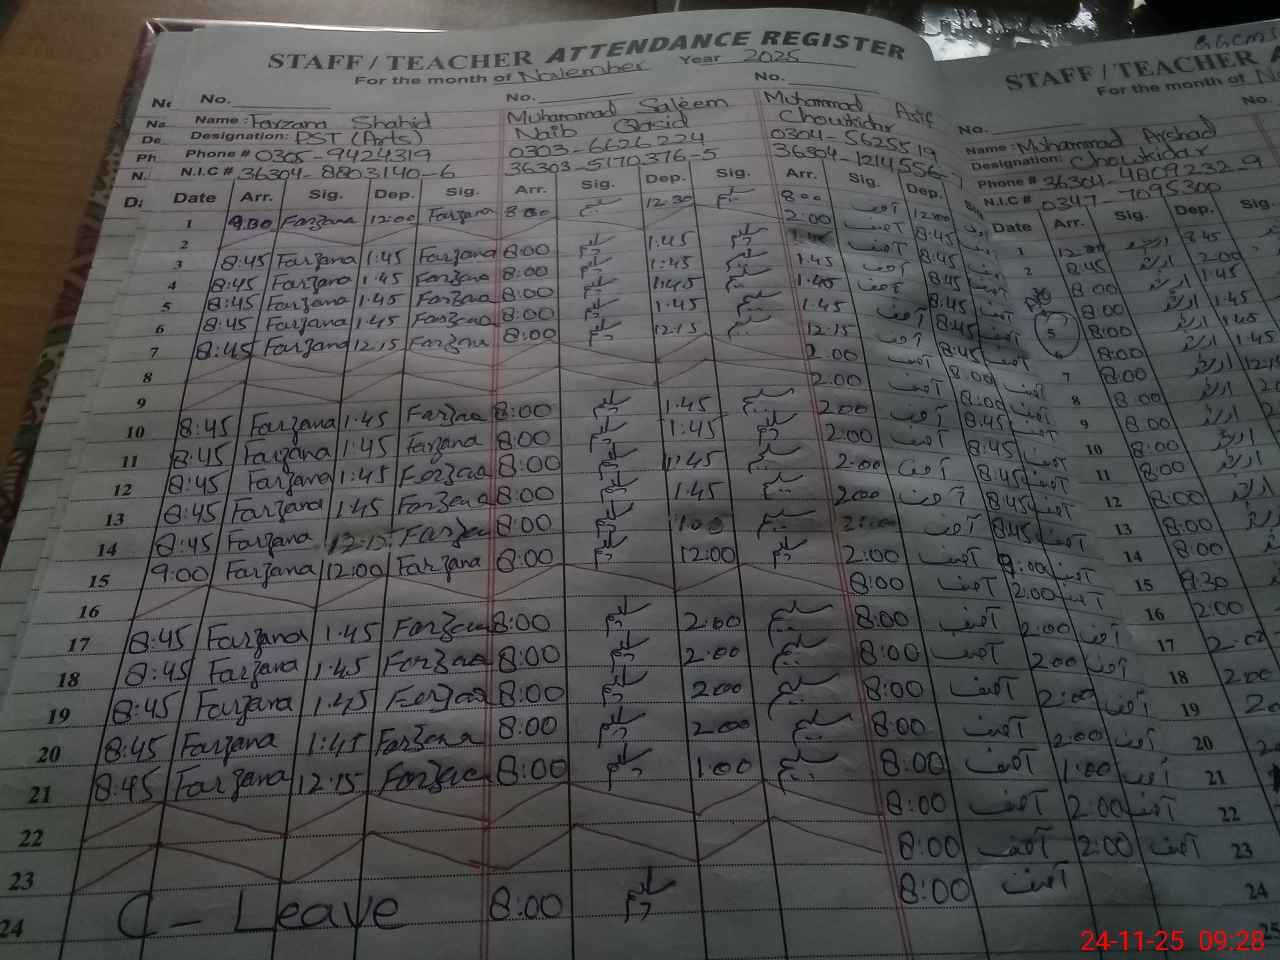 STAFF / TEACHER ATTENDANCE REGISTER
For the month of November Year 2025
No. No. No.
Name : Farzana Shahid Muhammad Saleem Muhammad Asif
Designation: PST (Arts) Naib Qasid Chowkidar
Phone # 0305-9424319 0303-6626224 0304-5625519
N.I.C # 36304-8803140-6 36303-5170376-5 36304-1214556-
Date Arr. Sig. Dep. Sig. Arr. Sig. Dep. Sig. Arr. Sig. Dep.
1 9:00 Farzana 12:00 Farzana 8:00 سلیم 12:30 سلیم 8:00 آصف 12:00
2 2:00 آصف 8:45
3 8:45 Farzana 1:45 Farzana 8:00 سلیم 1:45 سلیم 1:45 آصف 8:45
4 8:45 Farzana 1:45 Farzana 8:00 سلیم 1:45 سلیم 1:45 آصف 8:45
5 8:45 Farzana 1:45 Farzana 8:00 سلیم 1:45 سلیم 1:45 آصف 8:45
6 8:45 Farzana 1:45 Farzana 8:00 سلیم 1:45 سلیم 1:45 آصف 8:45
7 8:45 Farzana 12:15 Farzana 8:00 سلیم 12:15 سلیم 12:15 آصف 8:45
8 2:00 آصف 8:00 آصف
9 2:00 آصف 8:00 آصف
10 8:45 Farzana 1:45 Farzaa 8:00 سلیم 1:45 سلیم 2:00 آصف 8:45 آصف
11 8:45 Farzana 1:45 Farzana 8:00 سلیم 1:45 سلیم 2:00 آصف 8:45 آصف
12 8:45 Farzana 1:45 Farzaa 8:00 سلیم 1:45 سلیم 2:00 آصف 8:45 آصف
13 8:45 Farzana 1:45 Farzana 8:00 سلیم 1:45 سلیم 2:00 آصف 8:45 آصف
14 8:45 Farzana 12:15 Farzaa 8:00 سلیم 1:00 سلیم 2:00 آصف 8:45 آصف
15 9:00 Farzana 12:00 Farzana 8:00 سلیم 12:00 سلیم 2:00 آصف 9:00 آصف
16 8:00 آصف 2:00 آصف
17 8:45 Farzana 1:45 Farzana 8:00 سلیم 2:00 سلیم 8:00 آصف 2:00 آصف
18 8:45 Farzana 1:45 Farzaa 8:00 سلیم 2:00 سلیم 8:00 آصف 2:00 آصف
19 8:45 Farzana 1:45 Farzaa 8:00 سلیم 2:00 سلیم 8:00 آصف 2:00 آصف
20 8:45 Farzana 1:45 Farzana 8:00 سلیم 2:00 سلیم 8:00 آصف 2:00 آصف
21 8:45 Farzana 12:15 Farzaa 8:00 سلیم 1:00 سلیم 8:00 آصف 1:00 آصف
22 8:00 آصف 2:00 آصف
23 8:00 آصف 2:00 آصف
24 C - Leave 8:00 سلیم 8:00 آصف
STAFF / TEACHER
For the month of
No.
Name : Muhammad Arshad
Designation: Chowkidar
Phone # 36304-4809232-9
N.I.C # 0347-7095300
Date Arr. Sig. Dep. Sig.
1 8:45
2 8:45 ارشد 2:00
8:00 ارشد 1:45
5 8:00 ارشد 1:45
8:00 ارشد 1:45
7 8:00 ارشد
8 8:00 ارشد
9 8:00 ارشد
10 8:00 ارشد
11 8:00
12 8:00
13 8:00
14 8:00
15 9:30
16 2:00
17 2:00
18 2:00
19
20
21
22
23
24
25
24-11-25 09:28